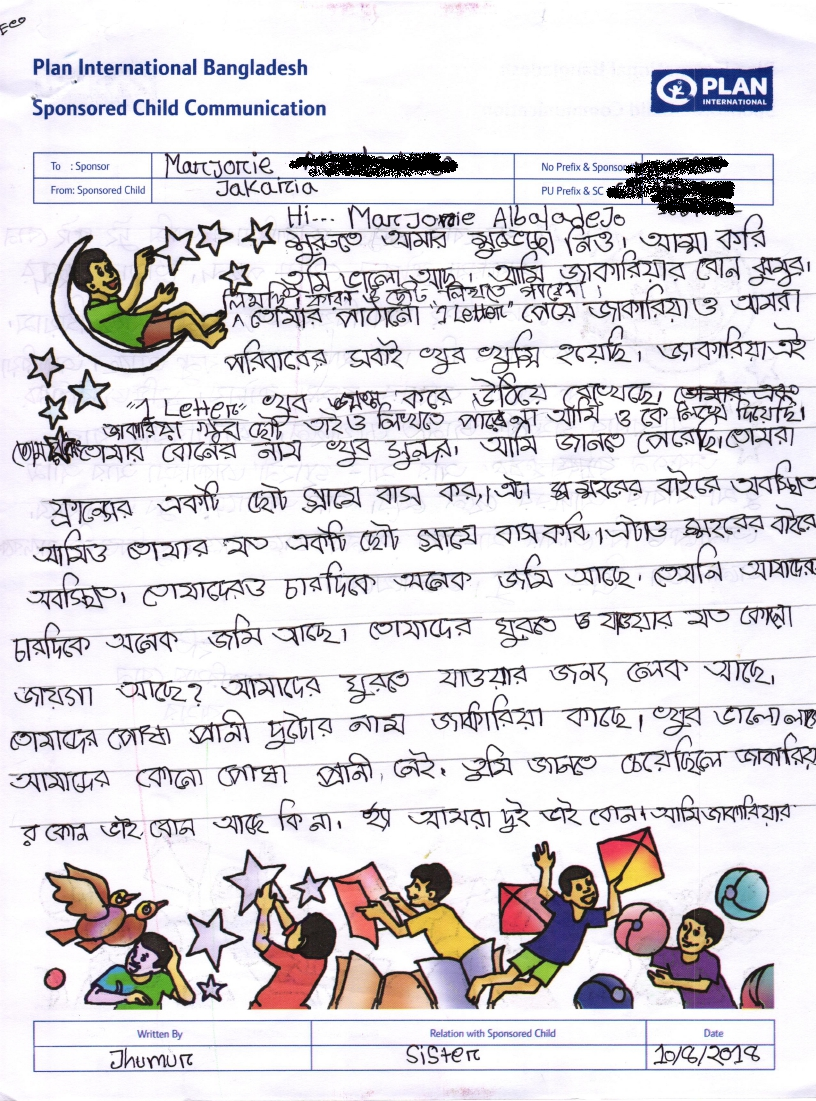 Eco
Plan International Bangladesh
Sponsored Child Communication
PLAN
INTERNATIONAL
To : Sponsor
Marjorie
No Prefix & Sponsor
From: Sponsored Child
Jakaria
PU Prefix & SC
Hi--- Marjorie Albaladejo
শুরুতে আমার শুভেচ্ছা নিও। আশা করি
তুমি ভালো আছ। আমি জাকারিয়ার বোন ঝুমুর।
লিখছি, কারণ ও ছোট লিখতে পারেনা।
তোমার পাঠানো "1 Letter" পেয়ে জাকারিয়া ও আমরা
পরিবারের সবাই খুব খুশি হয়েছি। জাকারিয়া এই
"1 Letter" খুব যত্ন করে উঠিয়ে রেখেছে।
জাকারিয়া খুব ছোট তাই ও লিখতে পারেনা আমি ও কে লিখে দিয়েছি।
তোমার বোনের নাম খুব সুন্দর। আমি জানতে পেরেছি তোমরা
ফ্রান্সের একটি ছোট গ্রামে বাস কর, এটা শহরের বাইরে অবস্থিত
আমিও তোমার মত একটি ছোট গ্রামে বাস করি, এটাও শহরের বাইরে
অবস্থিত। তোমাদেরও চারদিকে অনেক জমি আছে। তেমনি আমাদের
চারদিকে অনেক জমি আছে। তোমাদের ঘুরতে যাওয়ার মত কোনো
জায়গা আছে? আমাদের ঘুরতে যাওয়ার জন্য লেক আছে।
তোমাদের পোষা প্রানী দুটোর নাম জাকারিয়া কাছে। খুব ভালো লাগে
আমাদের কোনো পোষা প্রানী নেই। তুমি জানতে চেয়েছিলে জাকারিয়া
র কোন ভাই বোন আছে কি না। হ্যাঁ আমরা দুই ভাই বোন। আমি জাকারিয়ার
Written By
Relation with Sponsored Child
Date
Jhumur
Sister
10/8/2018